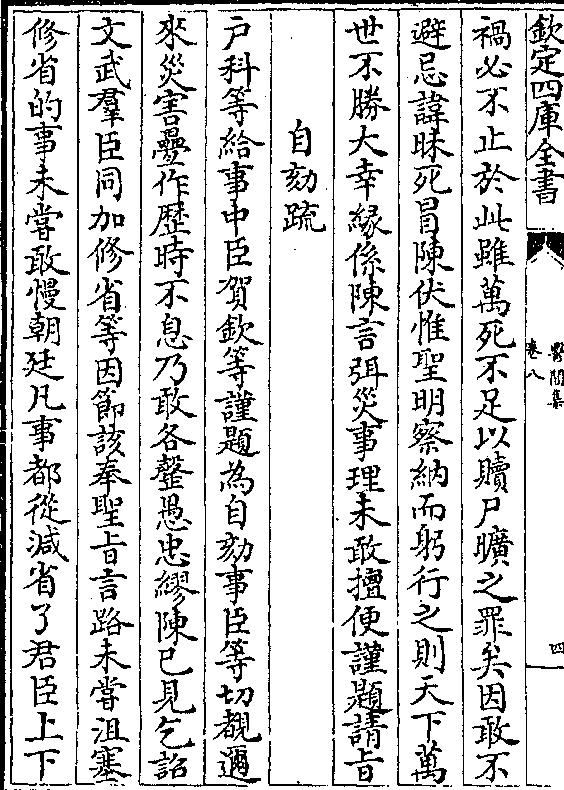 欽定四庫全書
醫閭集
卷八
四
禍必不止於此雖萬死不足以贖尸曠之罪矣因敢不
避忌諱昧死冒陳伏惟聖明察納而躬行之則天下萬
世不勝大幸緣係陳言弭災事理未敢擅便謹題請旨
自劾疏
户科等給事中臣賀欽等謹題為自劾事臣等切覩邇
來災害疊作歴時不息乃敢各螫愚忠繆陳已見乞詔
文武羣臣同加修省等因節該奉聖旨言路未嘗沮塞
修省的事未嘗敢慢朝廷凡事都從減省了君臣上下